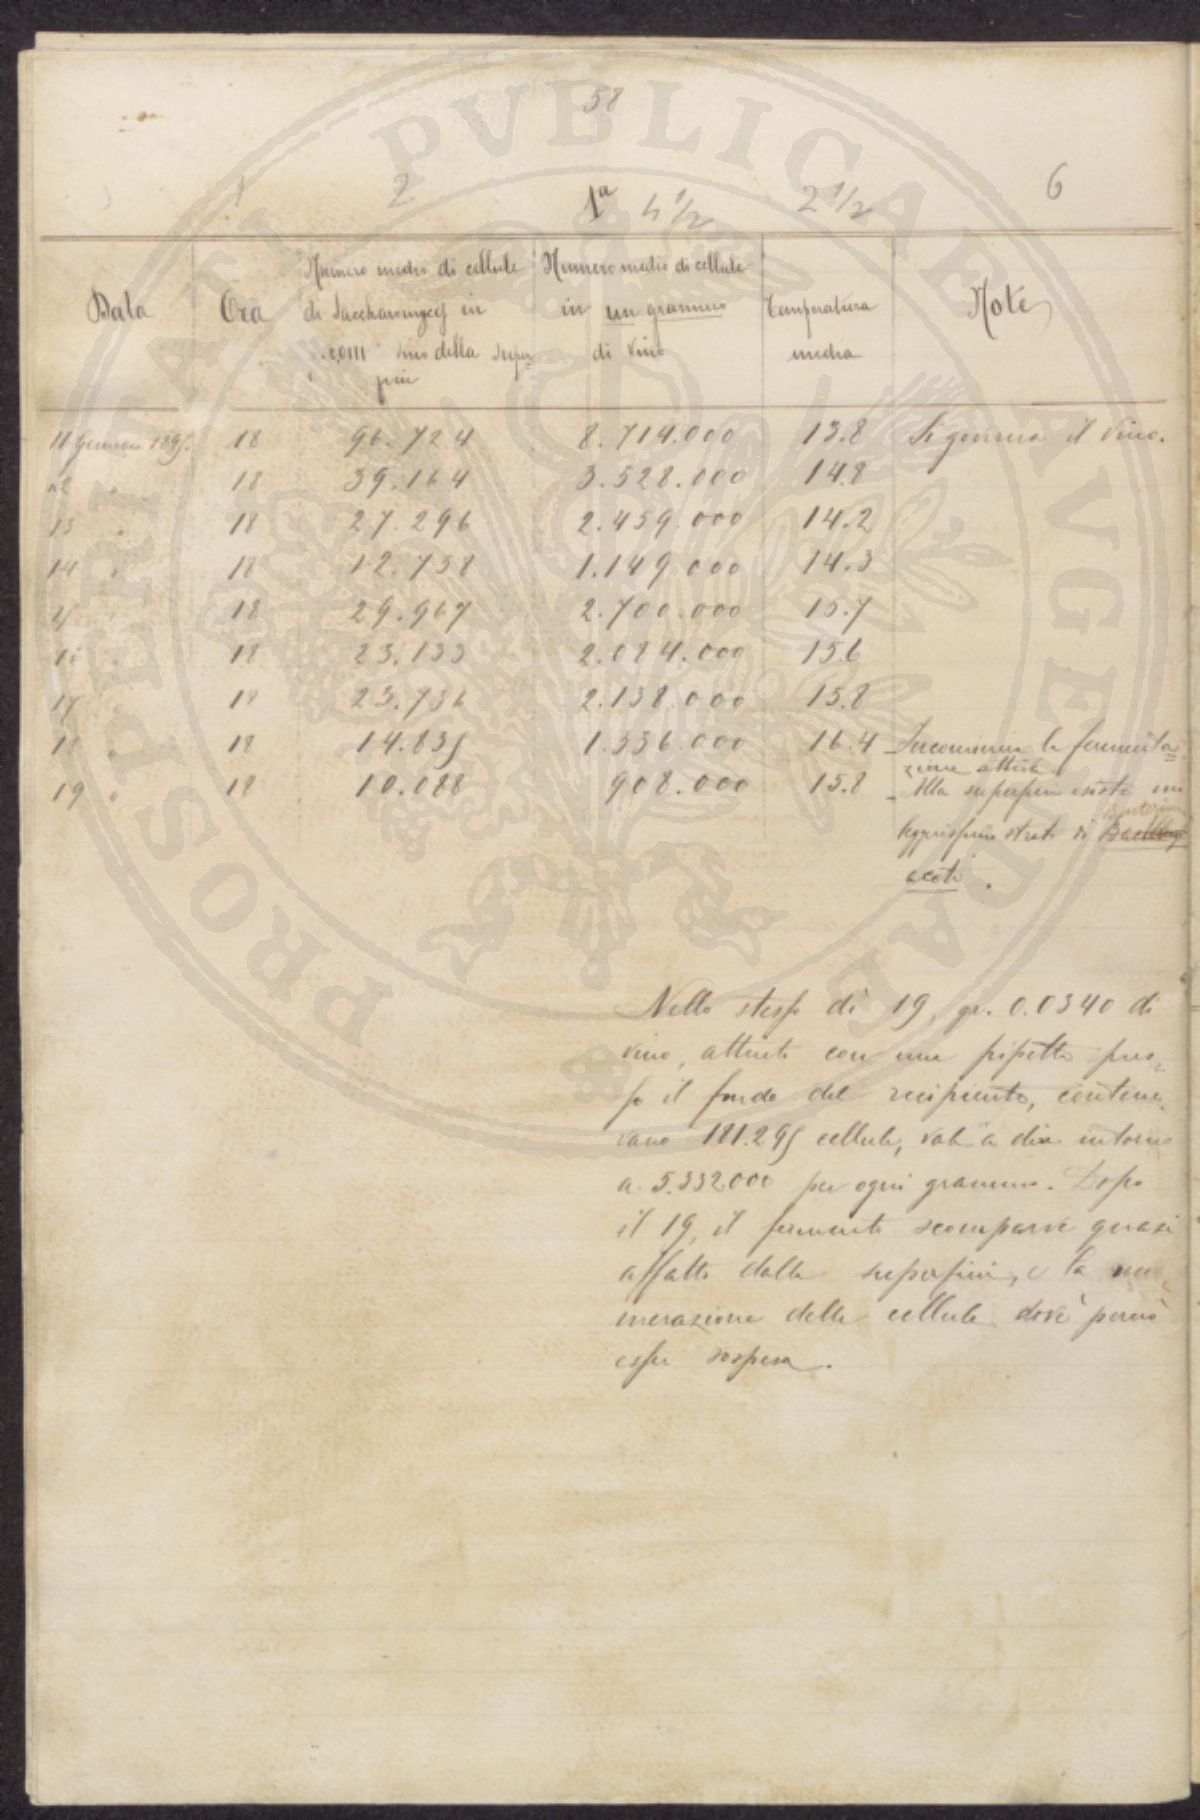 58
1 2 1ª 4 1/2 2 1/2 6
Data Ora Numero medio di cellule di Saccharomyces in 0,0111 vino della superficie Numero medio di cellule in un grammo di vino Temperatura media Note
11 Gennaio 1895. 18 96.724 8.714.000 13.8 Si governa il vino.
12 " 18 39.164 3.528.000 14.8
13 " 18 27.296 2.459.000 14.2
14 " 18 12.758 1.149.000 14.3
15 " 18 29.967 2.700.000 15.7
16 " 18 23.133 2.084.000 15.6
17 " 18 23.736 2.138.000 15.8
18 " 18 14.835 1.336.000 16.4 Incomincia la fermenta=
zione attiva
19 " 18 10.088 908.000 15.8 - Alla superficie esiste un
leggerissimo strato di
aceti.
Nello stesso dì 19, gr. 0.0340 di
vino, attinto con una pipetta pres=
so il fondo del recipiente, contene=
vano 181.295 cellule, val'a dire intorno
a 5.332000 per ogni grammo. Dopo
il 19, il fermento scomparve quasi
affatto dalla superficie, e la nu=
merazione delle cellule dovè perciò
esser sospesa.
PROSPERITATI PVBLICAE AVGENDAE